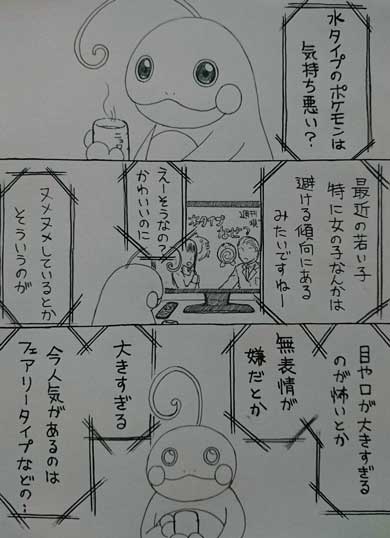 水タイプのポケモンは
気持ち悪い?
最近の若い子
特に女の子なんかは
避ける傾向にある
みたいですねー
週刊
水タイプ
なぜ?
えーそうなの?
かわいいのに
ヌメヌメしているとか
そういうのが
目や口が大きすぎる
のが怖いとか
無表情が
嫌だとか
大きすぎる
今人気があるのは
フェアリータイプなどの…